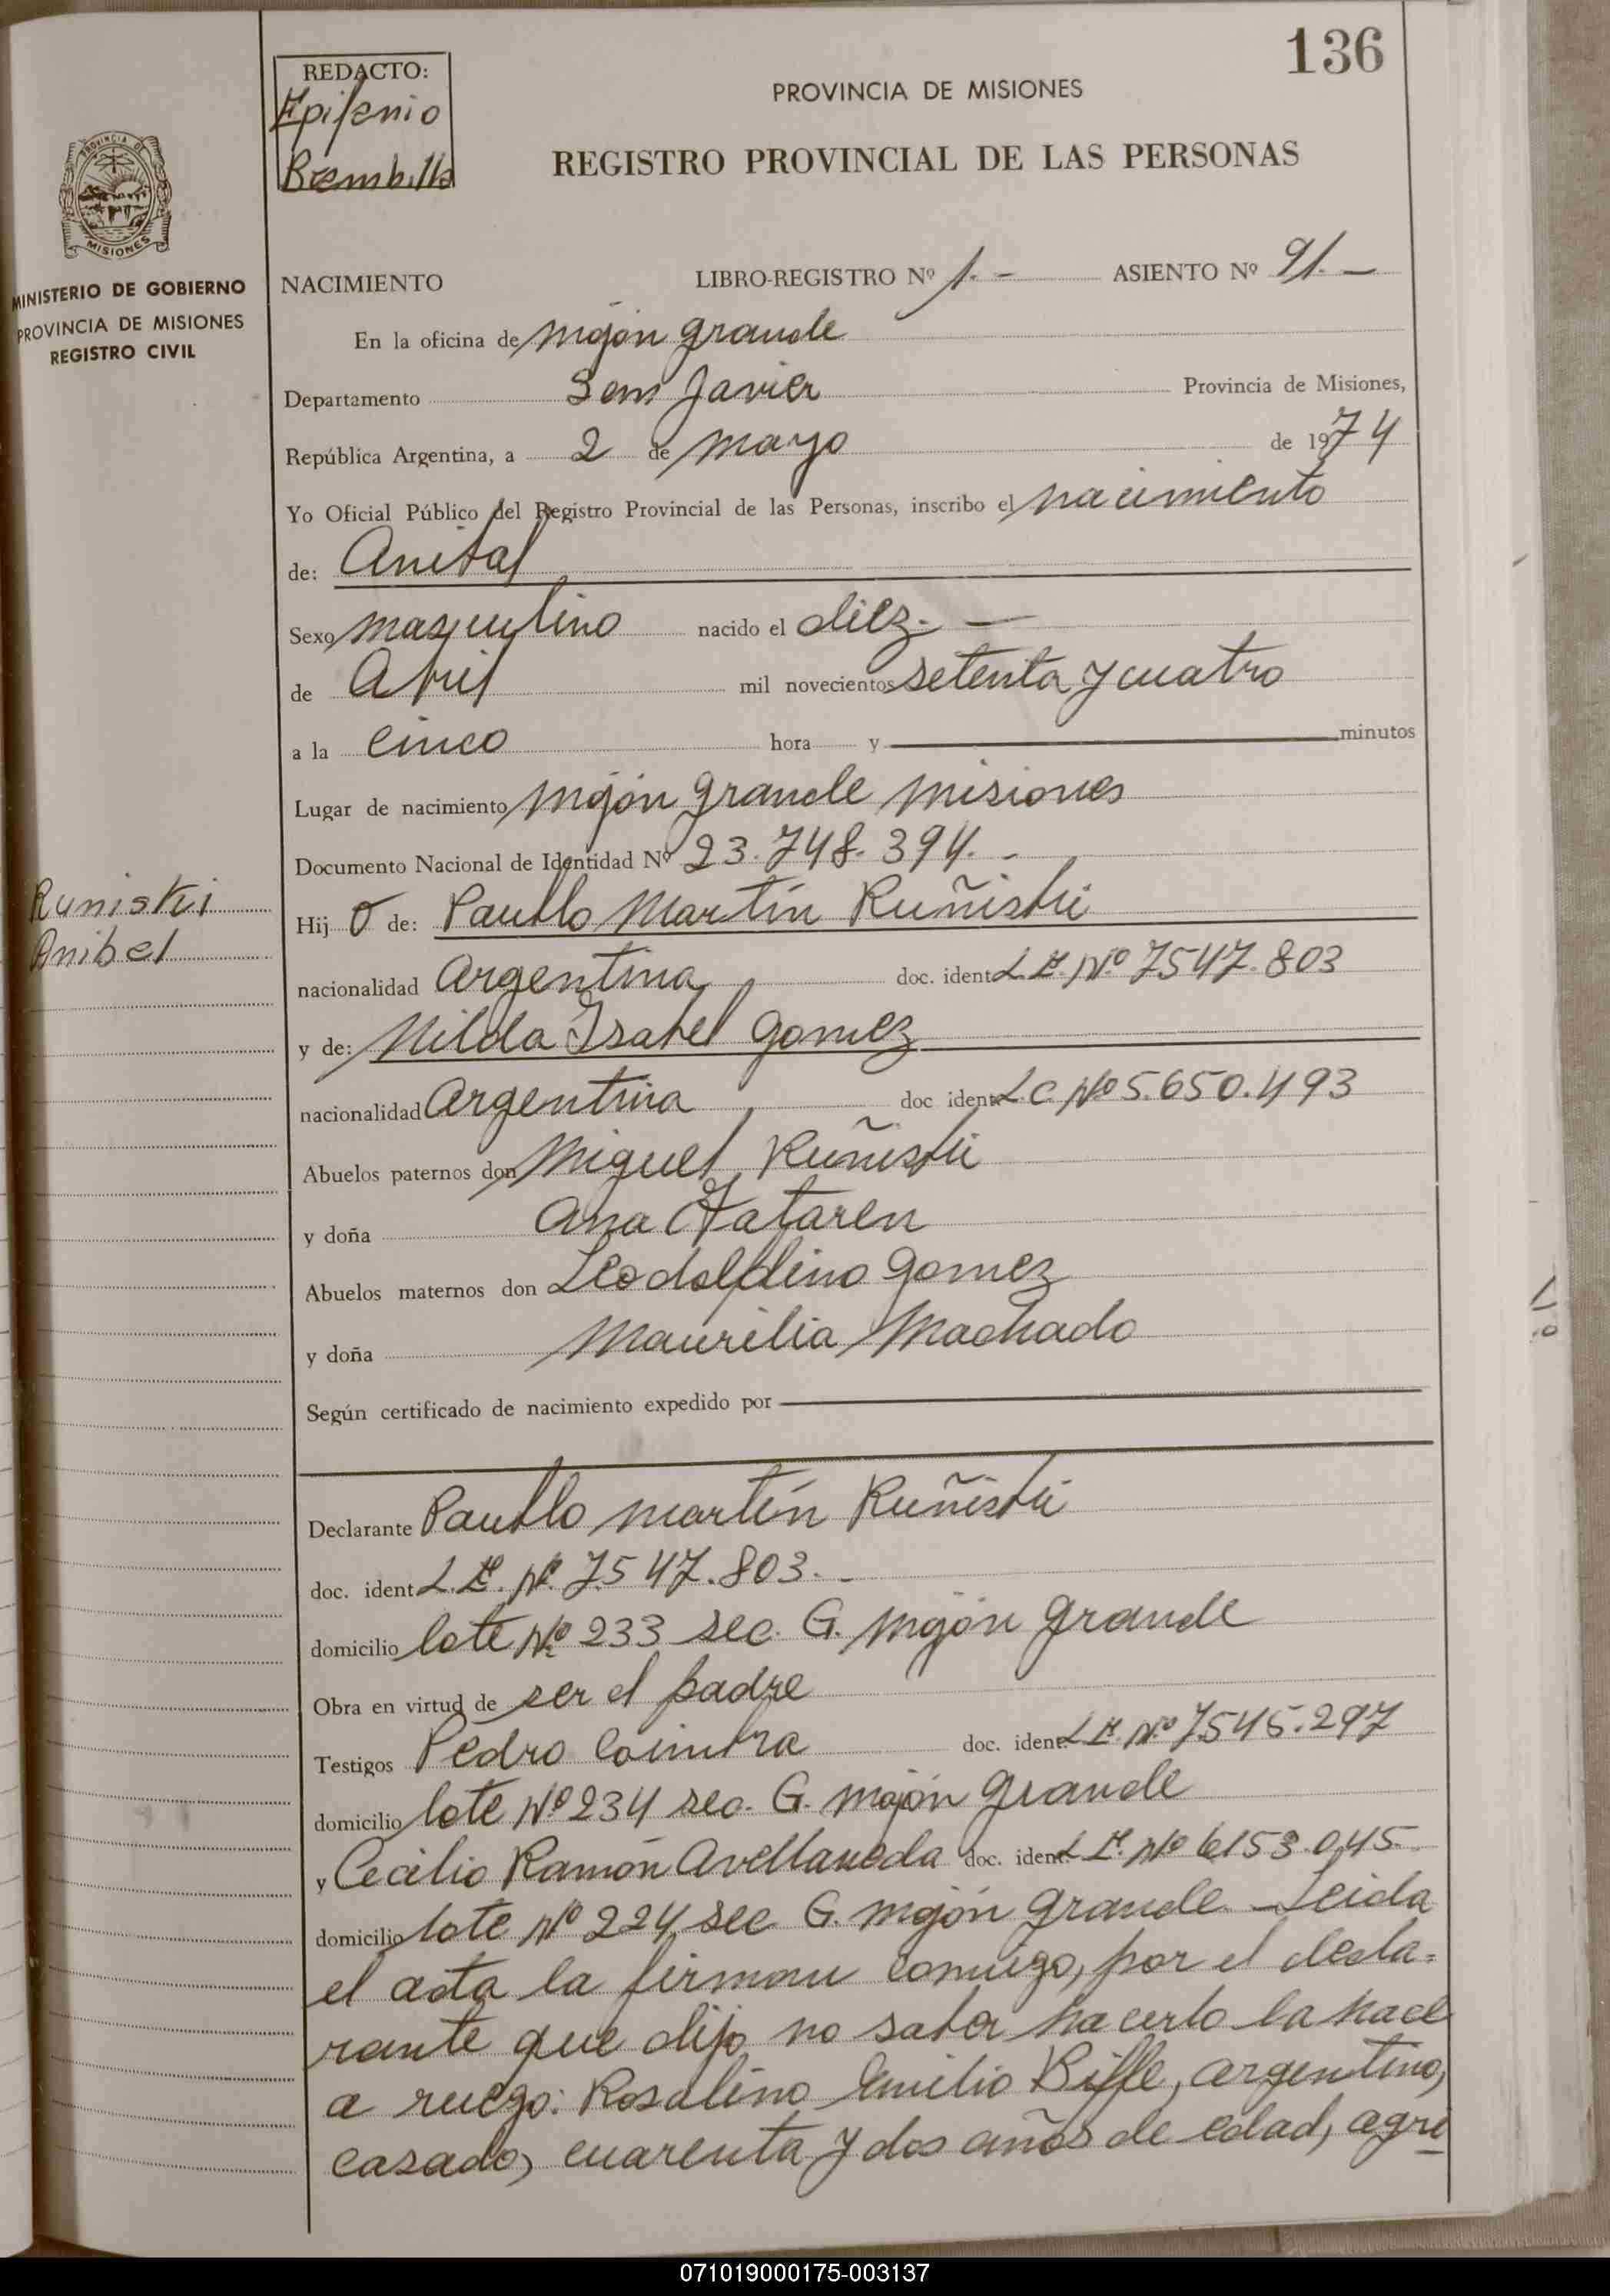 136
REDACTO:
Epifanio
Brambilla
PROVINCIA DE MISIONES
REGISTRO PROVINCIAL DE LAS PERSONAS
PROVINCIA DE
MISIONES
MINISTERIO DE GOBIERNO
PROVINCIA DE MISIONES
REGISTRO CIVIL
NACIMIENTO LIBRO-REGISTRO Nº 1.- ASIENTO Nº 91.-
En la oficina de Mojón grande
Departamento San Javier Provincia de Misiones,
República Argentina, a 2 de mayo de 1974
Yo Oficial Público del Registro Provincial de las Personas, inscribo el nacimiento
de: Anibal
Sexo masculino nacido el diez.-
de Abril mil novecientos setenta y cuatro
a la cinco hora y minutos
Lugar de nacimiento Mojón grande Misiones
Documento Nacional de Identidad Nº 23.748.394.-
Runiski
Anibal
Hij o de: Paublo Martín Ruñiski
nacionalidad Argentina doc. ident. L.E. Nº 7547.803
y de: Nilda Isabel Gomez
nacionalidad Argentina doc ident. L.C. Nº 5.650.493
Abuelos paternos don Miguel Ruñiski
y doña Ana
Abuelos maternos don Leodolfino Gomez
y doña Maurilia Machado
Según certificado de nacimiento expedido por
Declarante Paublo Martín Ruñiski
doc. ident. L.E. Nº 7547.803.-
domicilio lote Nº 233 sec. G. Mojón Grande
Obra en virtud de ser el padre
Testigos Pedro Coimbra doc. ident. L.E. Nº 7545.297
domicilio lote Nº 234 sec. G. Mojón Grande
y Cecilio Ramón Avellaneda doc. ident. L.E. Nº 6153.045
domicilio lote Nº 224 sec G. Mojón grande - Leida
el acta la firman comigo, por el decla-
rante que dijo no saber hacerlo la hace
a ruego: Rosalino Emilio Biffe, argentino,
casado, cuarenta y dos años de edad, agri
071019000175-003137